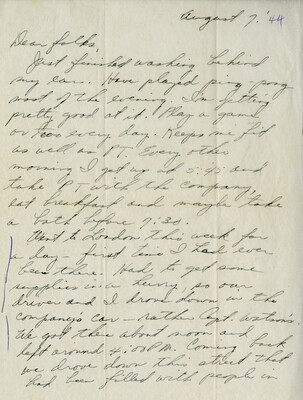 August 7. '44
Dear folks,
Just finished washing behind
my ears. Have played ping-pong
most of the evening. I'm getting
pretty good at it. Play a game
or two every day. Keeps me fit
as well as PT. Every other
morning I get up at 5:45 and
take PT with the company,
eat breakfast and maybe take
a bath before 7:30.
Went to London this week for
a day - first time I had ever
been there. Had to get some
supplies in a hurry, so our
driver and I drove down in the
company car - rather Capt. Watson's.
We got there about noon and
left around 4:00 P.M. Coming back
we drove down this street that
had been filled with people in